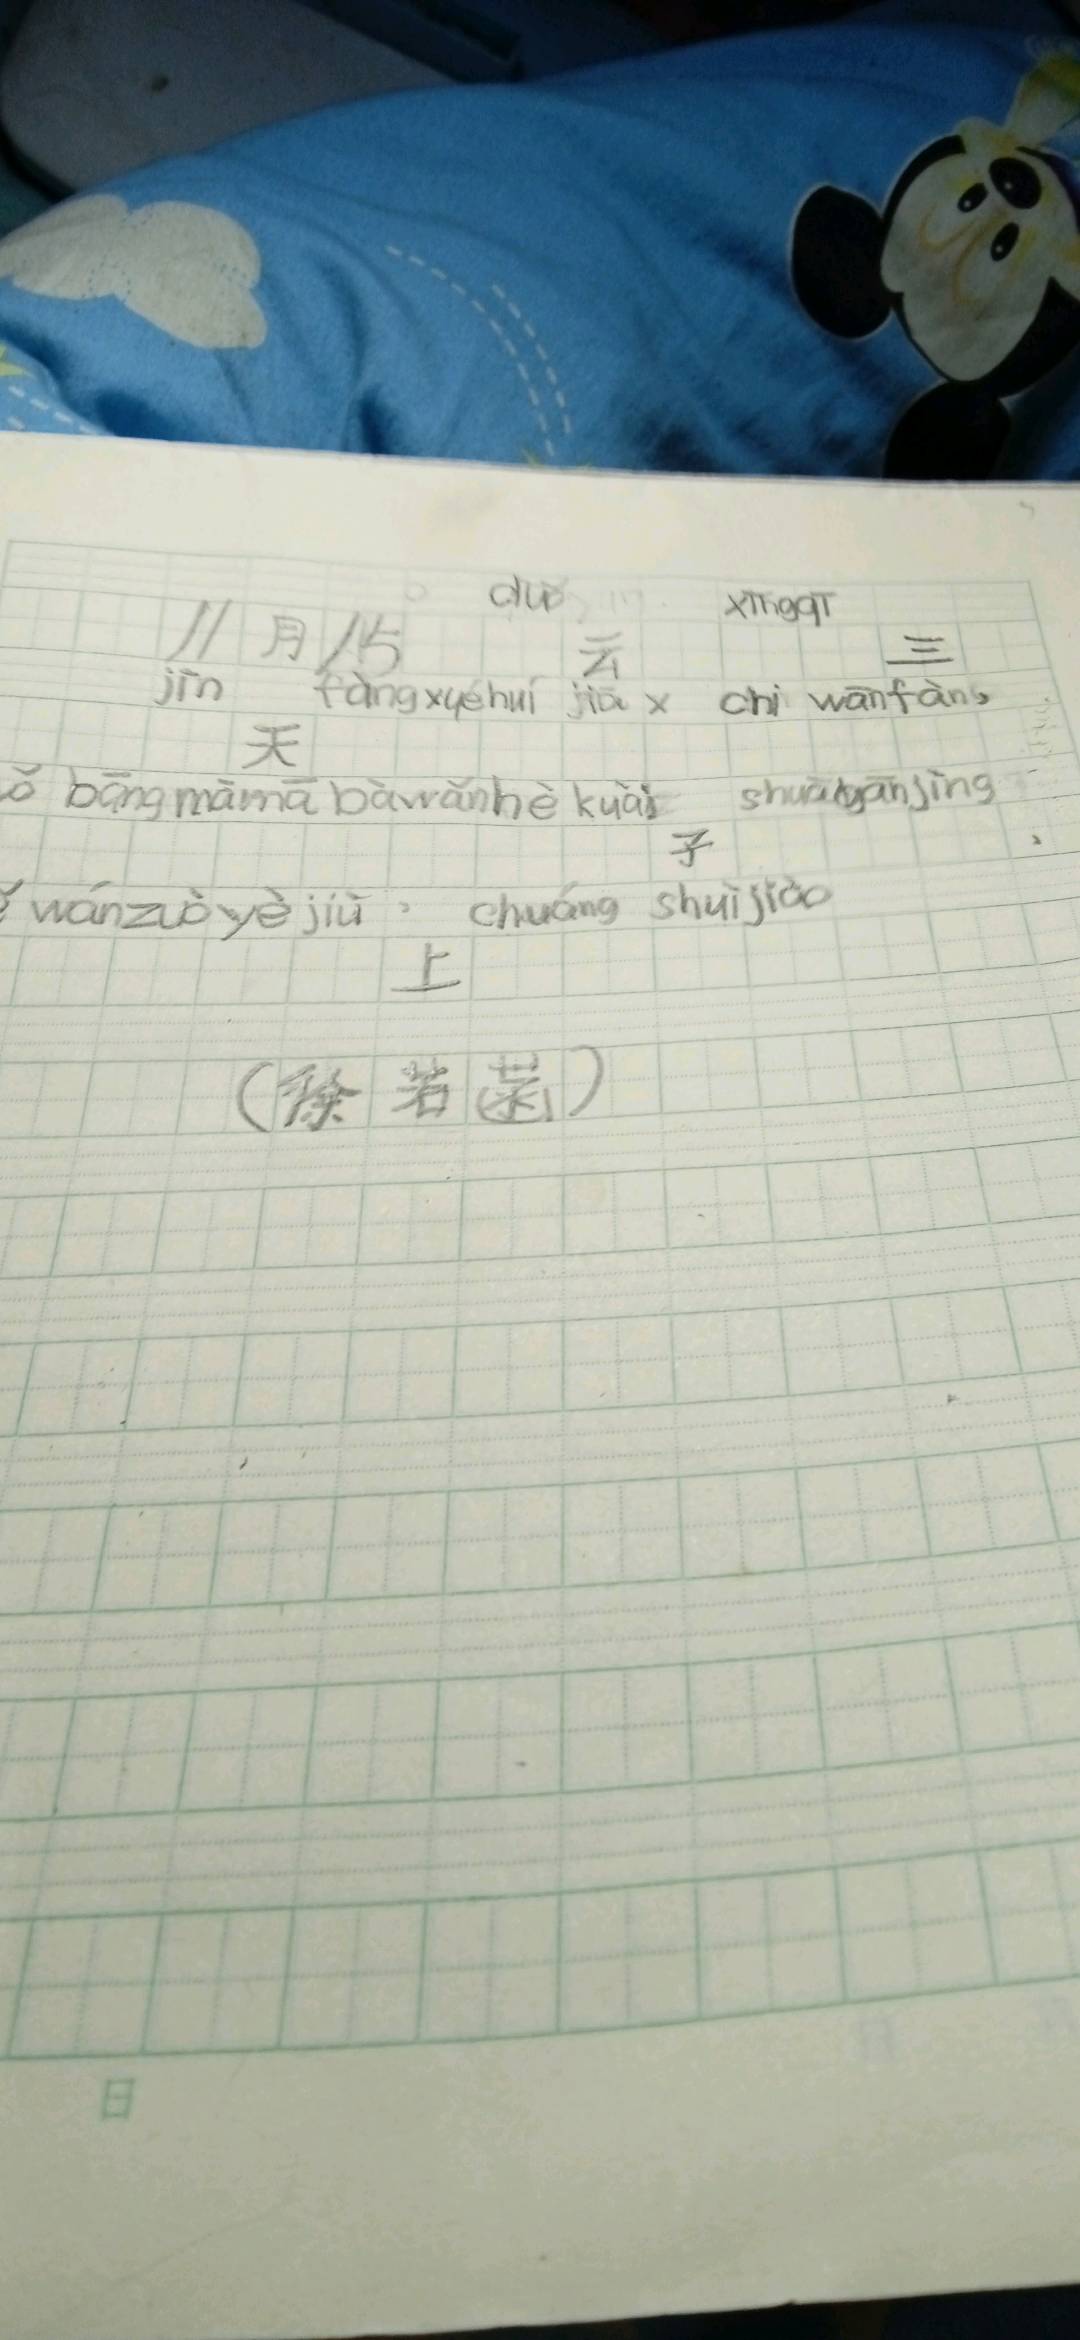 duō xīngqī
11月15 云 三
jīn fàngxuéhuí jiā x chi wǎnfàn,
天
ǒ bāngmāmā bǎwǎnhè kuài shuāyǎnjīng
子 ,
wánzuòyè jiù , chuáng shuìjiào
上
(徐若菡)
日